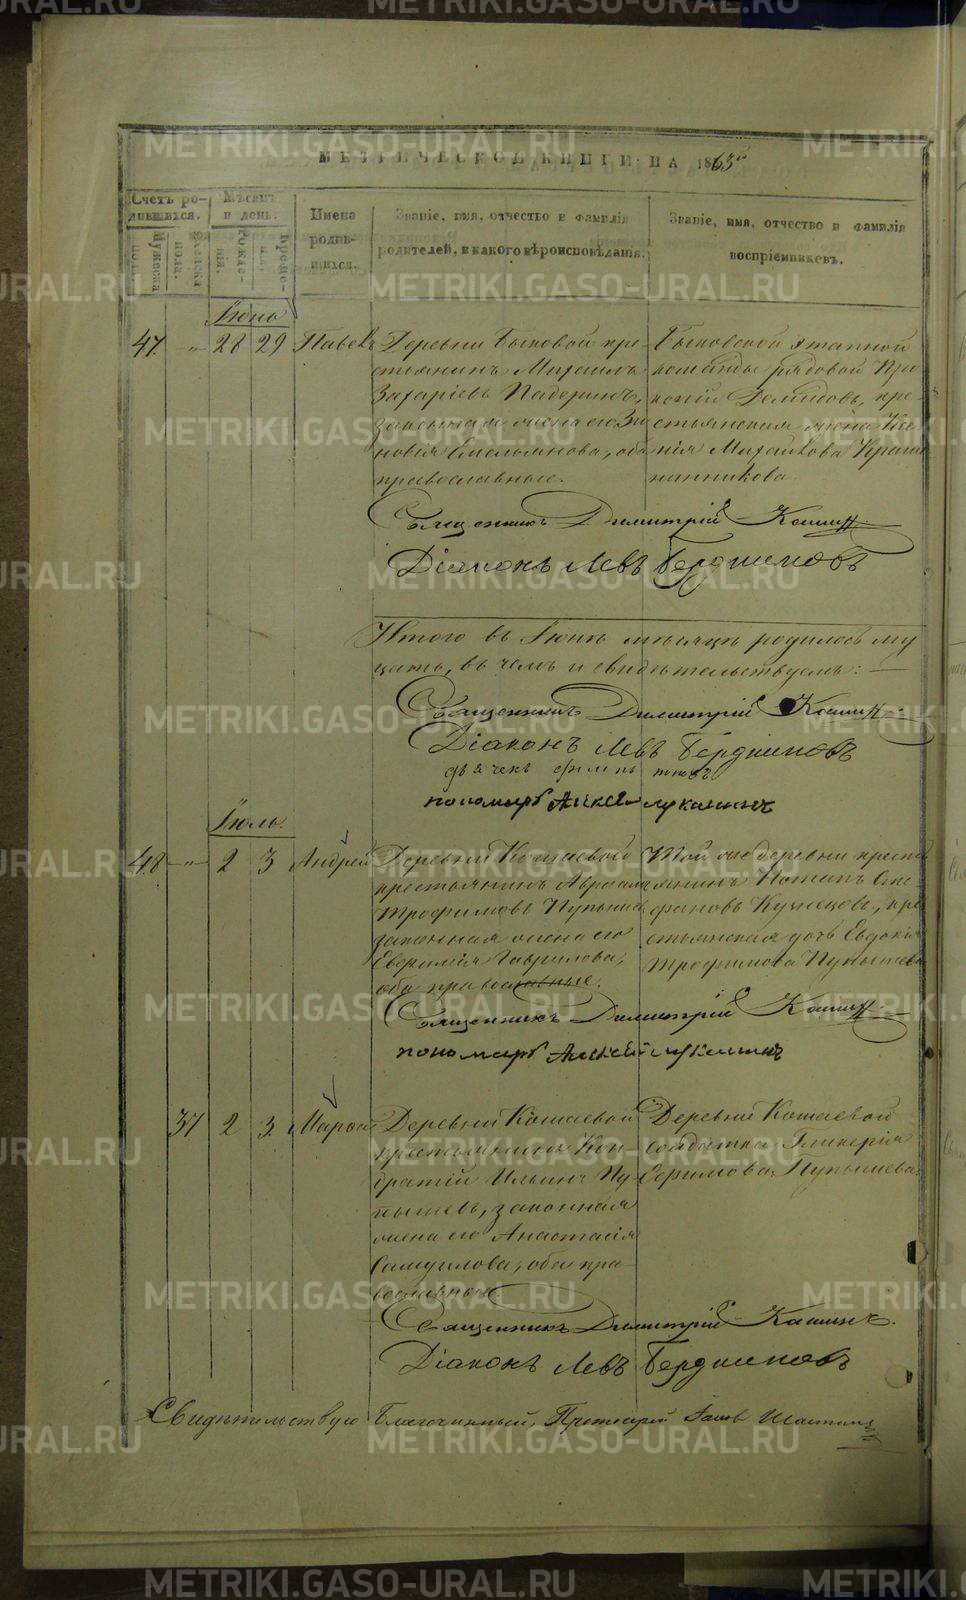 METRIKI.GASO-URAL.RU
МЕТРИЧЕСКОЙ КНИГИ НА 1863
Счетъ родившихся.
Мужеска пола.
Женска пола.
Мѣсяцъ и день.
Рожденія.
Крещенія.
Имена родившихся.
Званіе, имя, отчество и фамилія
родителей, и какого вѣроисповѣданія.
Званіе, имя, отчество и фамилія
воспріемниковъ.
Іюнь
47. " 28 29 Павелъ
Деревни Быковой кре-
стьянинъ Михаилъ
Захаріевъ Падеринъ,
законная жена его Зи-
новія Емельянова, оба
православные.
Быковской этапной
команды рядовой Про
копій Демидовъ, кре-
стьянская жена Ксе-
нія Михайлова
Священникъ Димитрій Кашинъ
Діаконъ Левъ Бердниковъ
Итого въ Іюнѣ мѣсяцѣ родилось му
, въ чемъ и свидѣтельствуемъ:
Священникъ Димитрій Кашинъ
Діаконъ Левъ Бердниковъ
дьячекъ поповъ
пономарь Алексѣй Лукашинъ
Іюль.
48 " 2 3 Андрей
Деревни Кошаевой
крестьянинъ Авраамъ
Трофимовъ Пупышевъ,
законная жена его
Евфимія Гаврилова,
оба православные.
Той же деревни кресть
янинъ Потапъ Сте-
фановъ Кузнецовъ, кре
стьянская дочь Евдокія
Трофимова Пупышева
Священникъ Димитрій Кашинъ
пономарь Алексѣй Лукашинъ
37 2 3 Марфа
Деревни Кошаевой
крестьянинъ Кон
дратій Ильинъ Пу
пышевъ, законная
жена его Анастасія
Самуилова, оба пра-
вославные
Деревни Кошаевой
солдатка Гликерія
Ефимова Пупышева
Священникъ Димитрій Кашинъ.
Діаконъ Левъ Бердниковъ
Свидѣтельствую Благочинный, Протоіерей Іаковъ